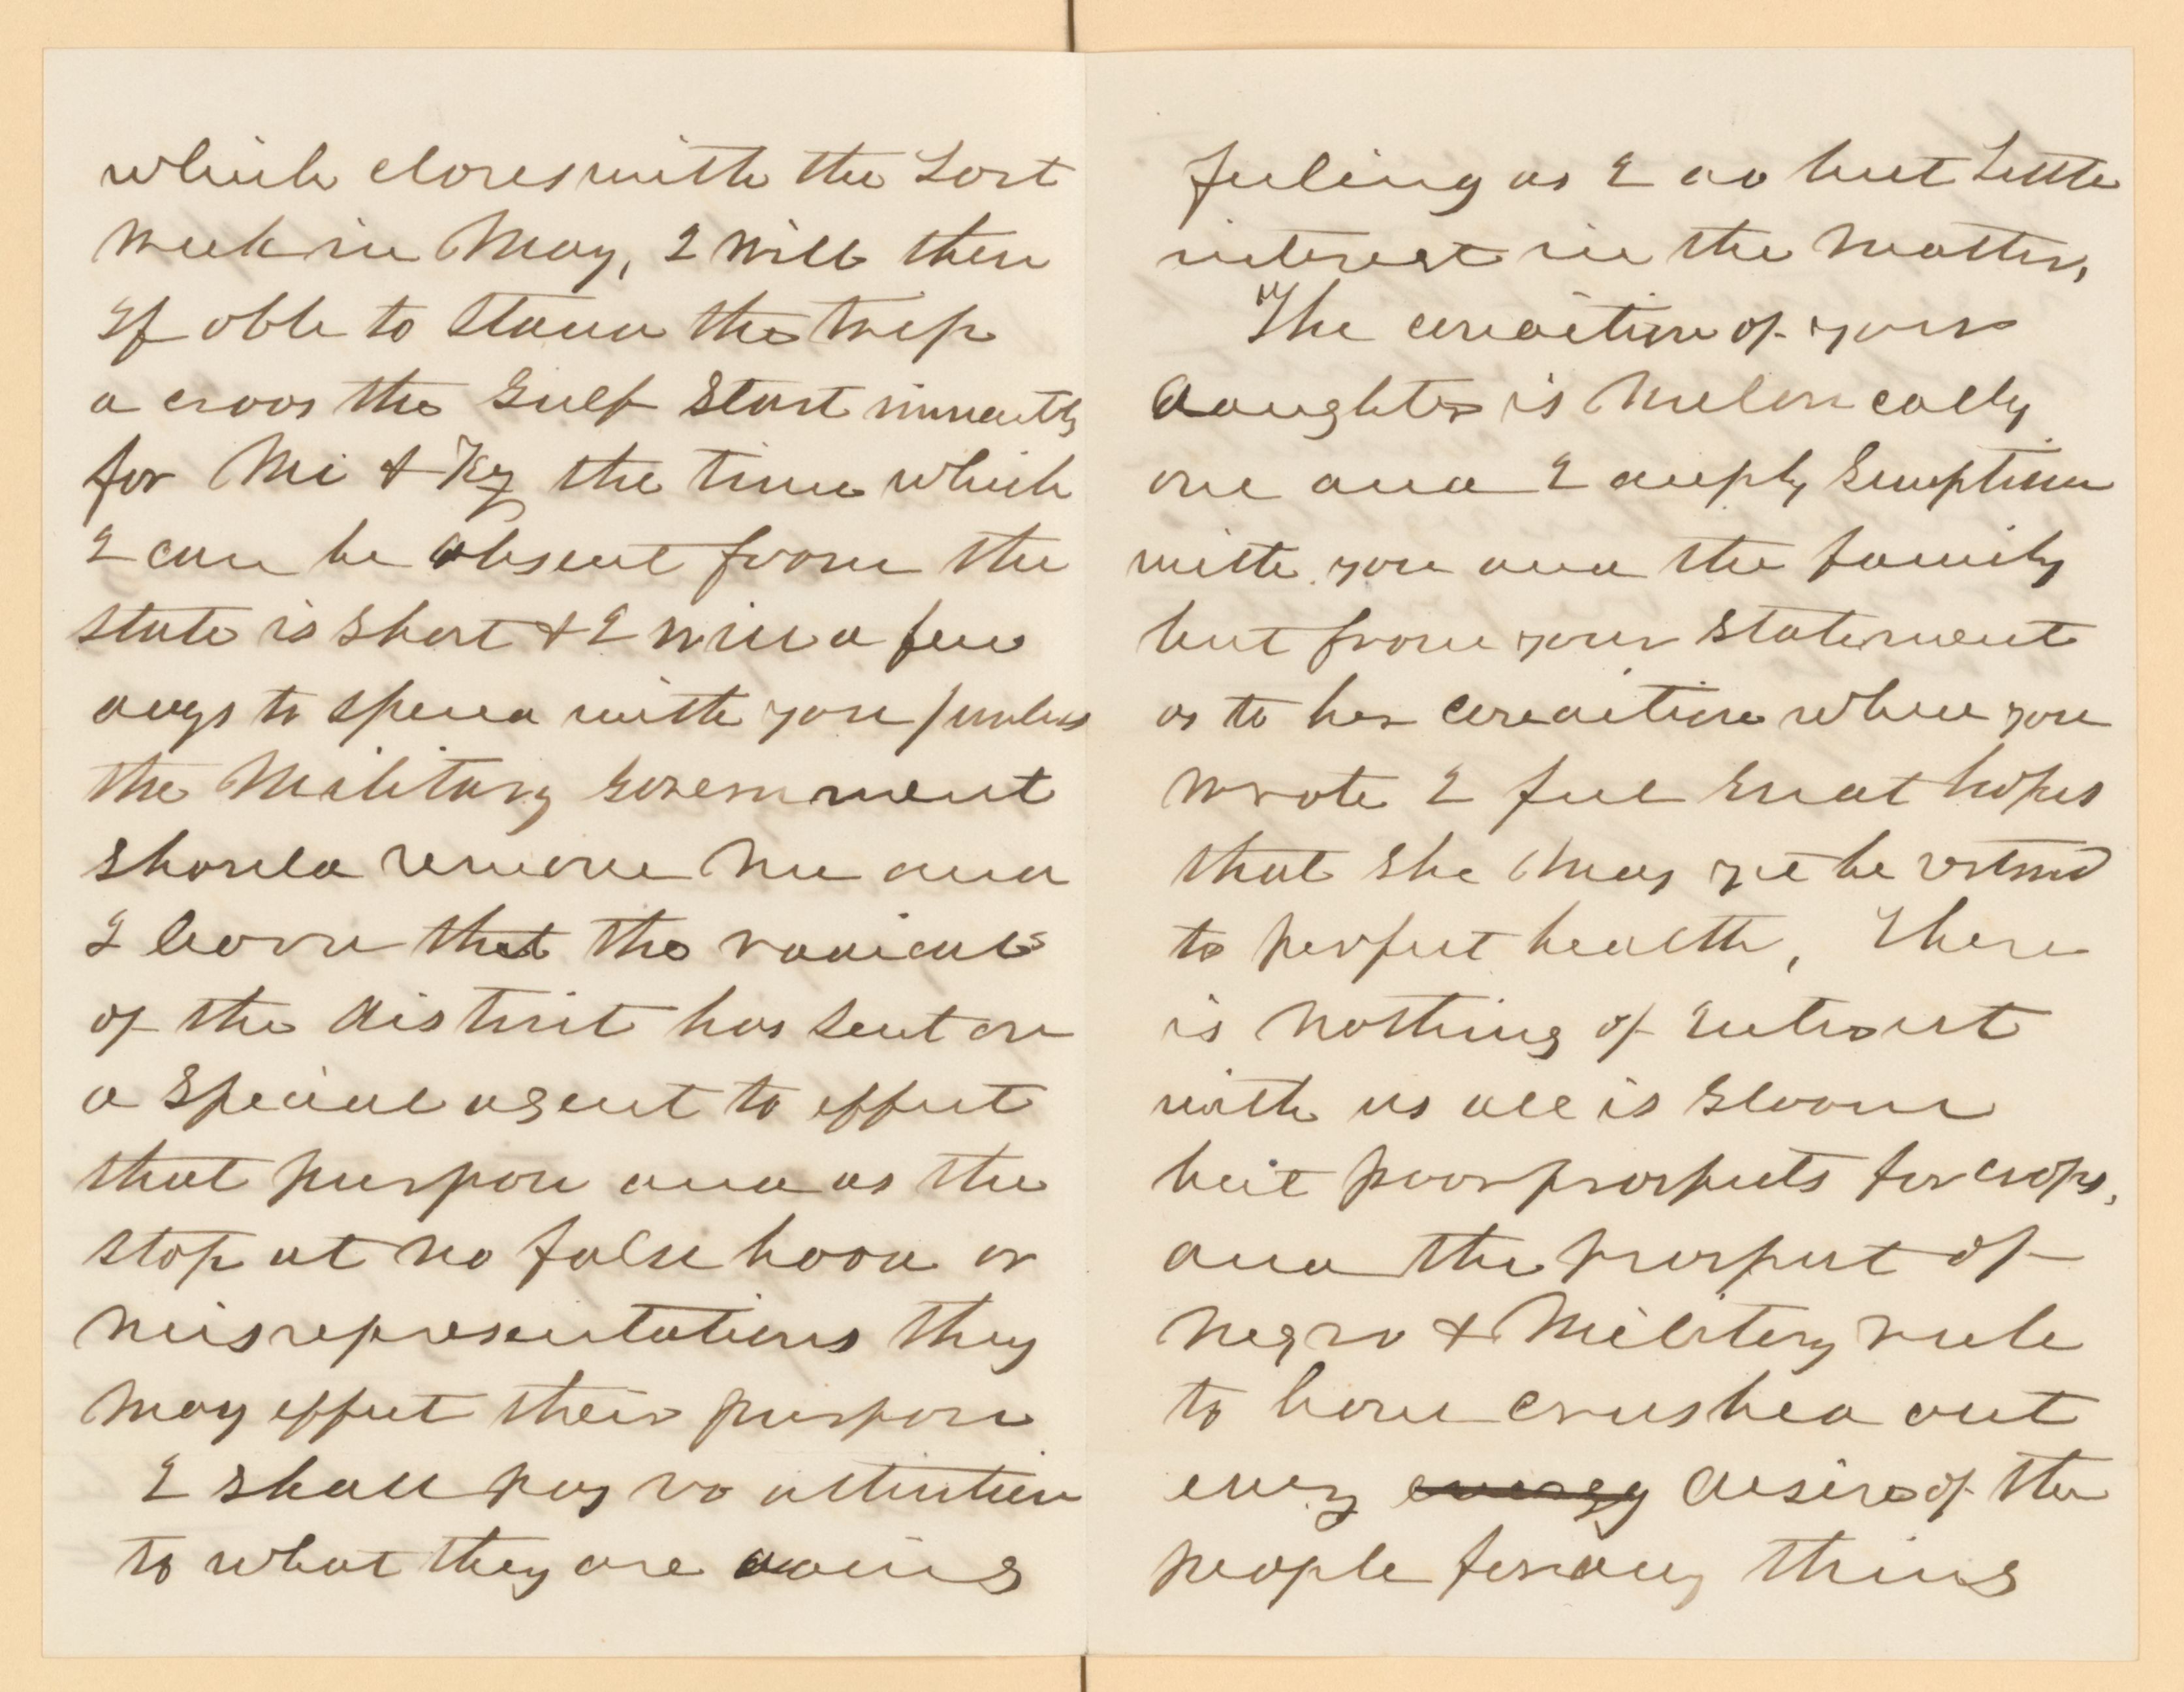 which closes with the Last
week in May, I will then
If able to stand the trip
a cross the Gulf Start immeatly
for Mi & Ky the time which
I can be absent from the
state is short & I will a few
days to spend with you / unless
the Military Government
should remove me and
I learn that the radicals
of the district has sent on
a special agent to effect
that purpose and as the
stop at no false hood or
misrepresentations they
may effect their purpose
I shall pay no attention
to what they are doing
feeling as I do but Little
interest in the matter,
The condition of your
daughter is Melon colly
one and I deeply Simpthise
with you and the family
but from your statement
as to her condition when you
wrote I feel Great hopes
that she may yet be restord
to perfect health, There
is nothing of Interest
with us all is Gloom
but poor prospects for crops,
and the prospect of
negro & Military rule
to have crushed out
every energy desire of the
people for any thing